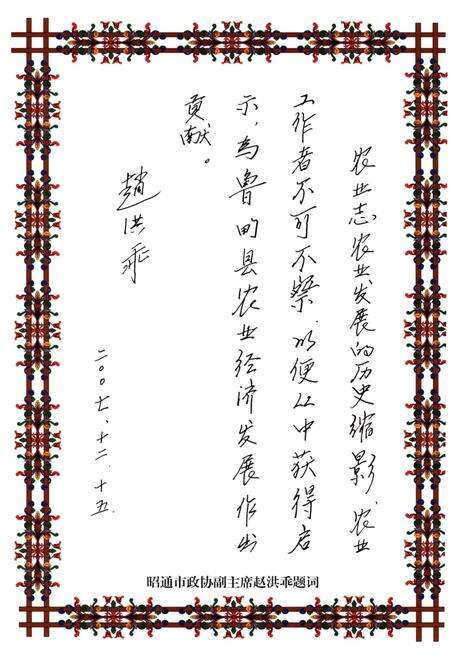 农业志农业发展的历史缩影、农业
工作者不可不察,以便从中获得启
示,为鲁甸县农业经济发展作出
贡献。
趙洪乖
二〇〇七、十二、十五.
昭通市政协副主席赵洪乖题词